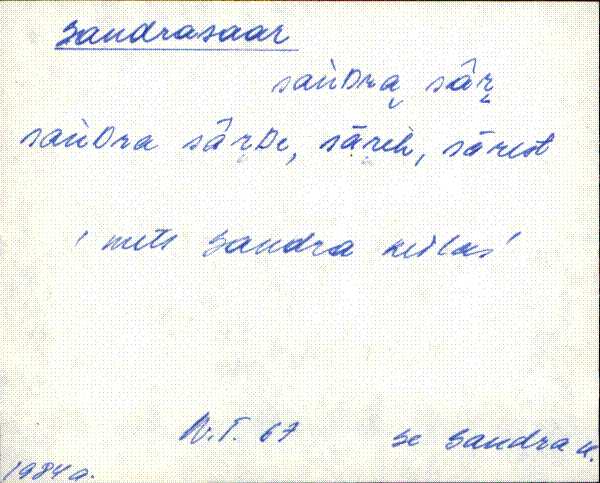 Sandrasaar
saǹDra̮ sâr̭
saǹDra sârDe, sāreh, sārest
' mets Sandra külas'
N.T. 67 Se Sandra k.
1984 a.